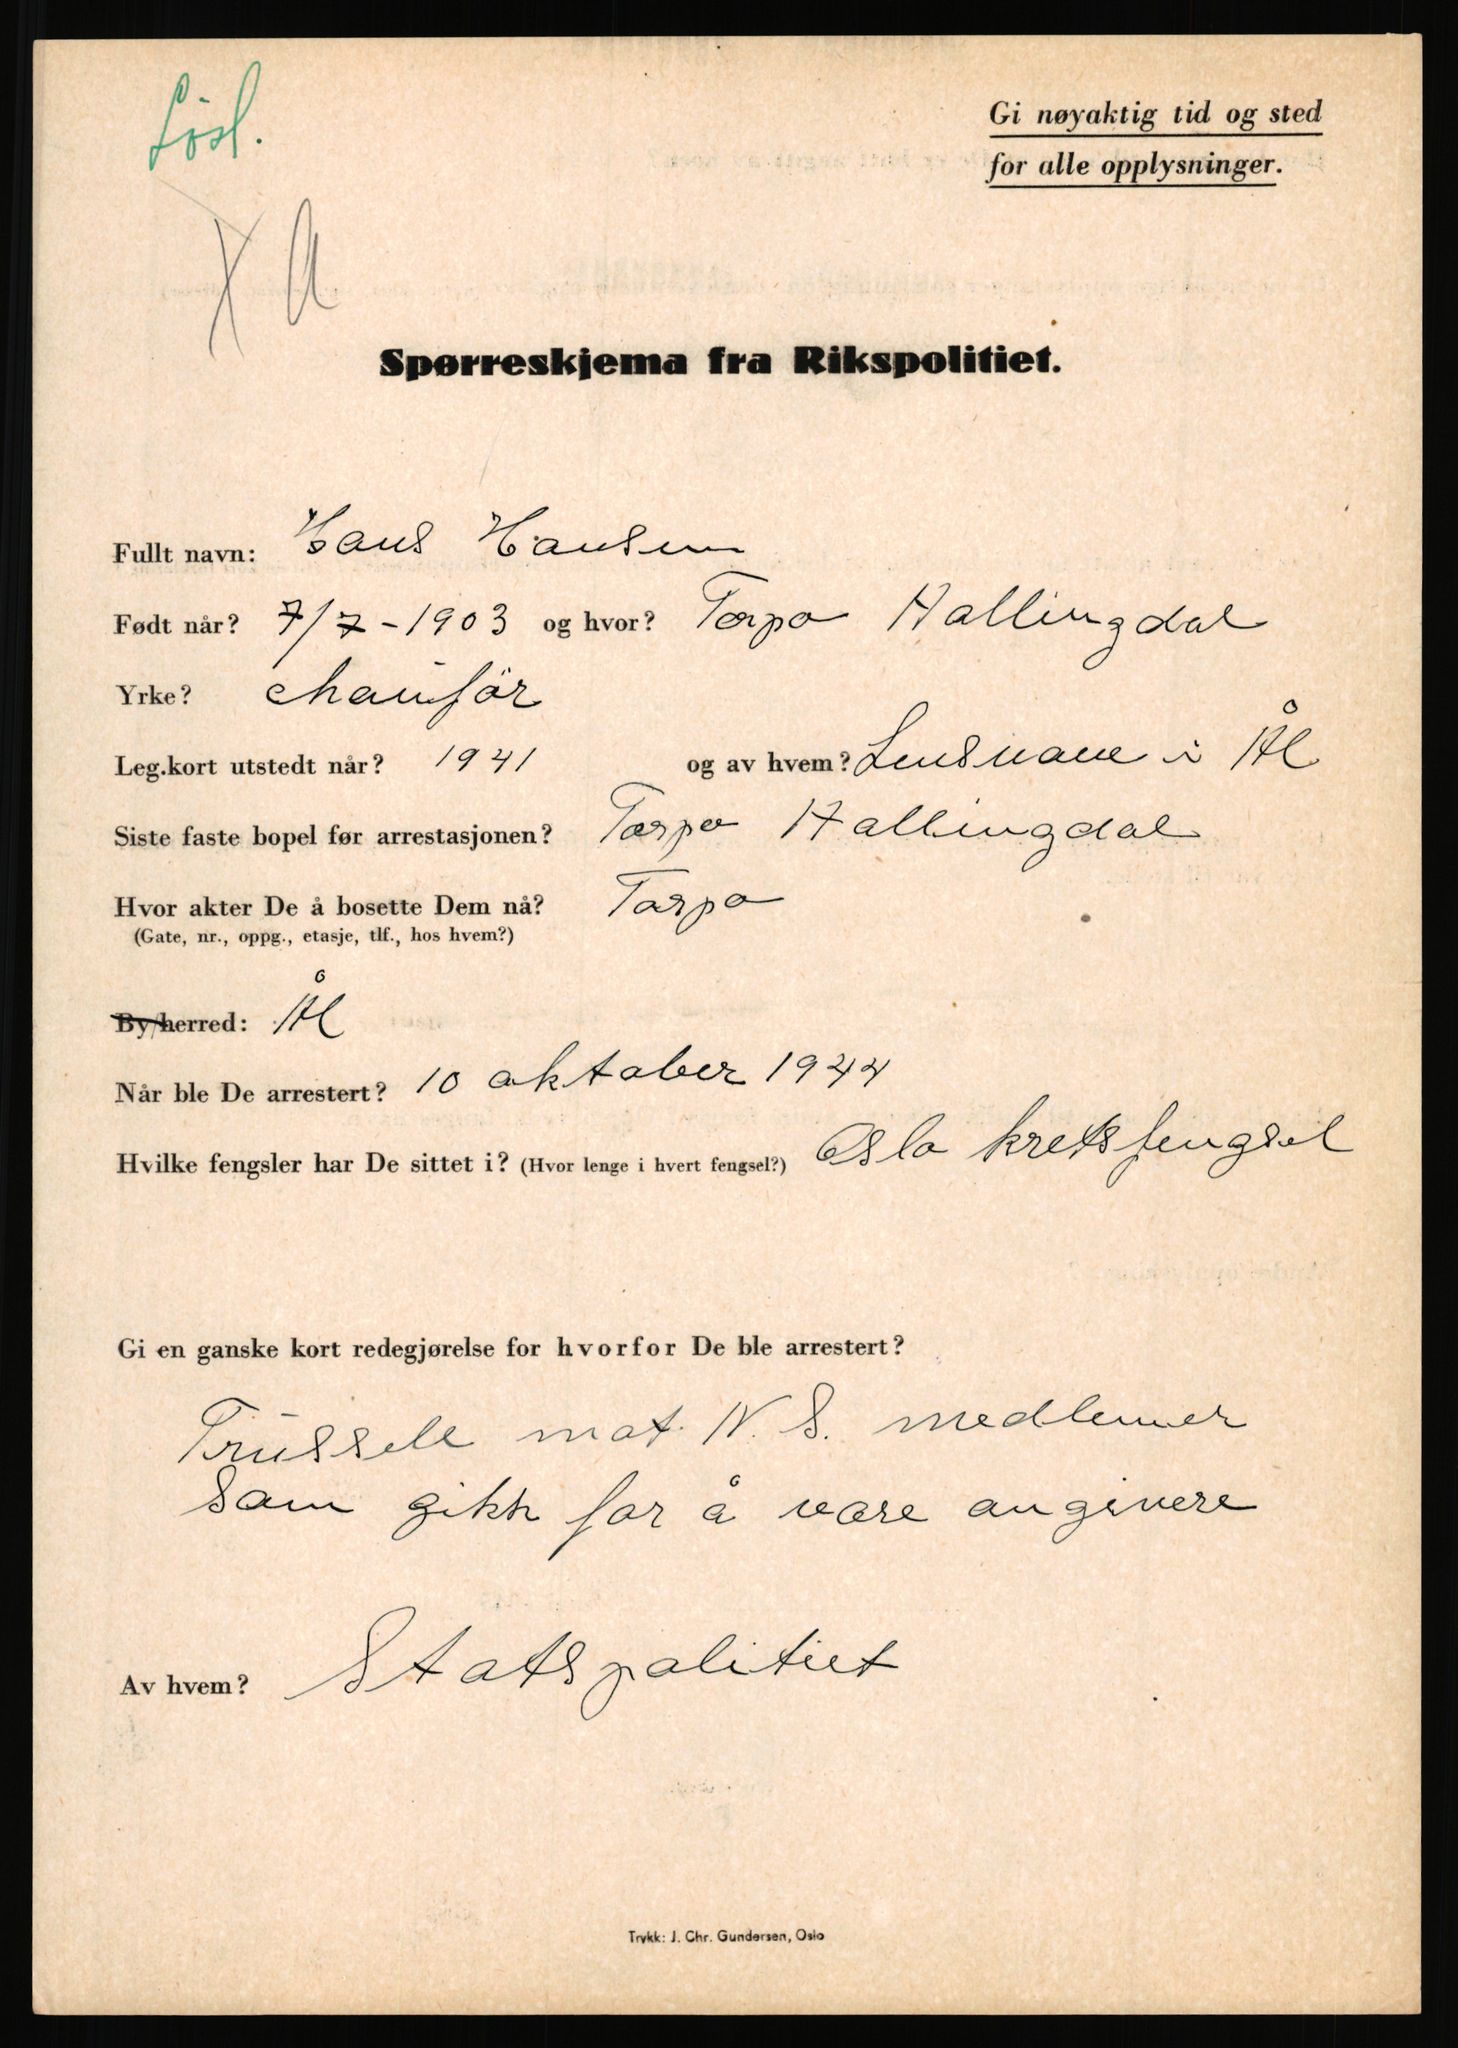 Løsl.
Gi nøyaktig tid og sted
for alle opplysninger.
X A
Spørreskjema fra Rikspolitiet.
Fullt navn: Hans Hansen
Født når? 7/7-1903 og hvor? Torpo Hallingdal
Yrke? chaufør
Leg.kort utstedt når? 1941 og av hvem? Lensmann i Ål
Siste faste bopel før arrestasjonen? Torpo Hallingdal
Hvor akter De å bosette Dem nå? Torpo
(Gate, nr., oppg., etasje, tlf., hos hvem?)
By/herred: Ål
Når ble De arrestert? 10 oktober 1944
Hvilke fengsler har De sittet i? (Hvor lenge i hvert fengsel?) Oslo kretsfengsel
Gi en ganske kort redegjørelse for hvorfor De ble arrestert?
Trussell mot N.S. medlemer
som gikk for å være angivere
Av hvem? Statspolitiet
Trykk: J. Chr. Gundersen, Oslo